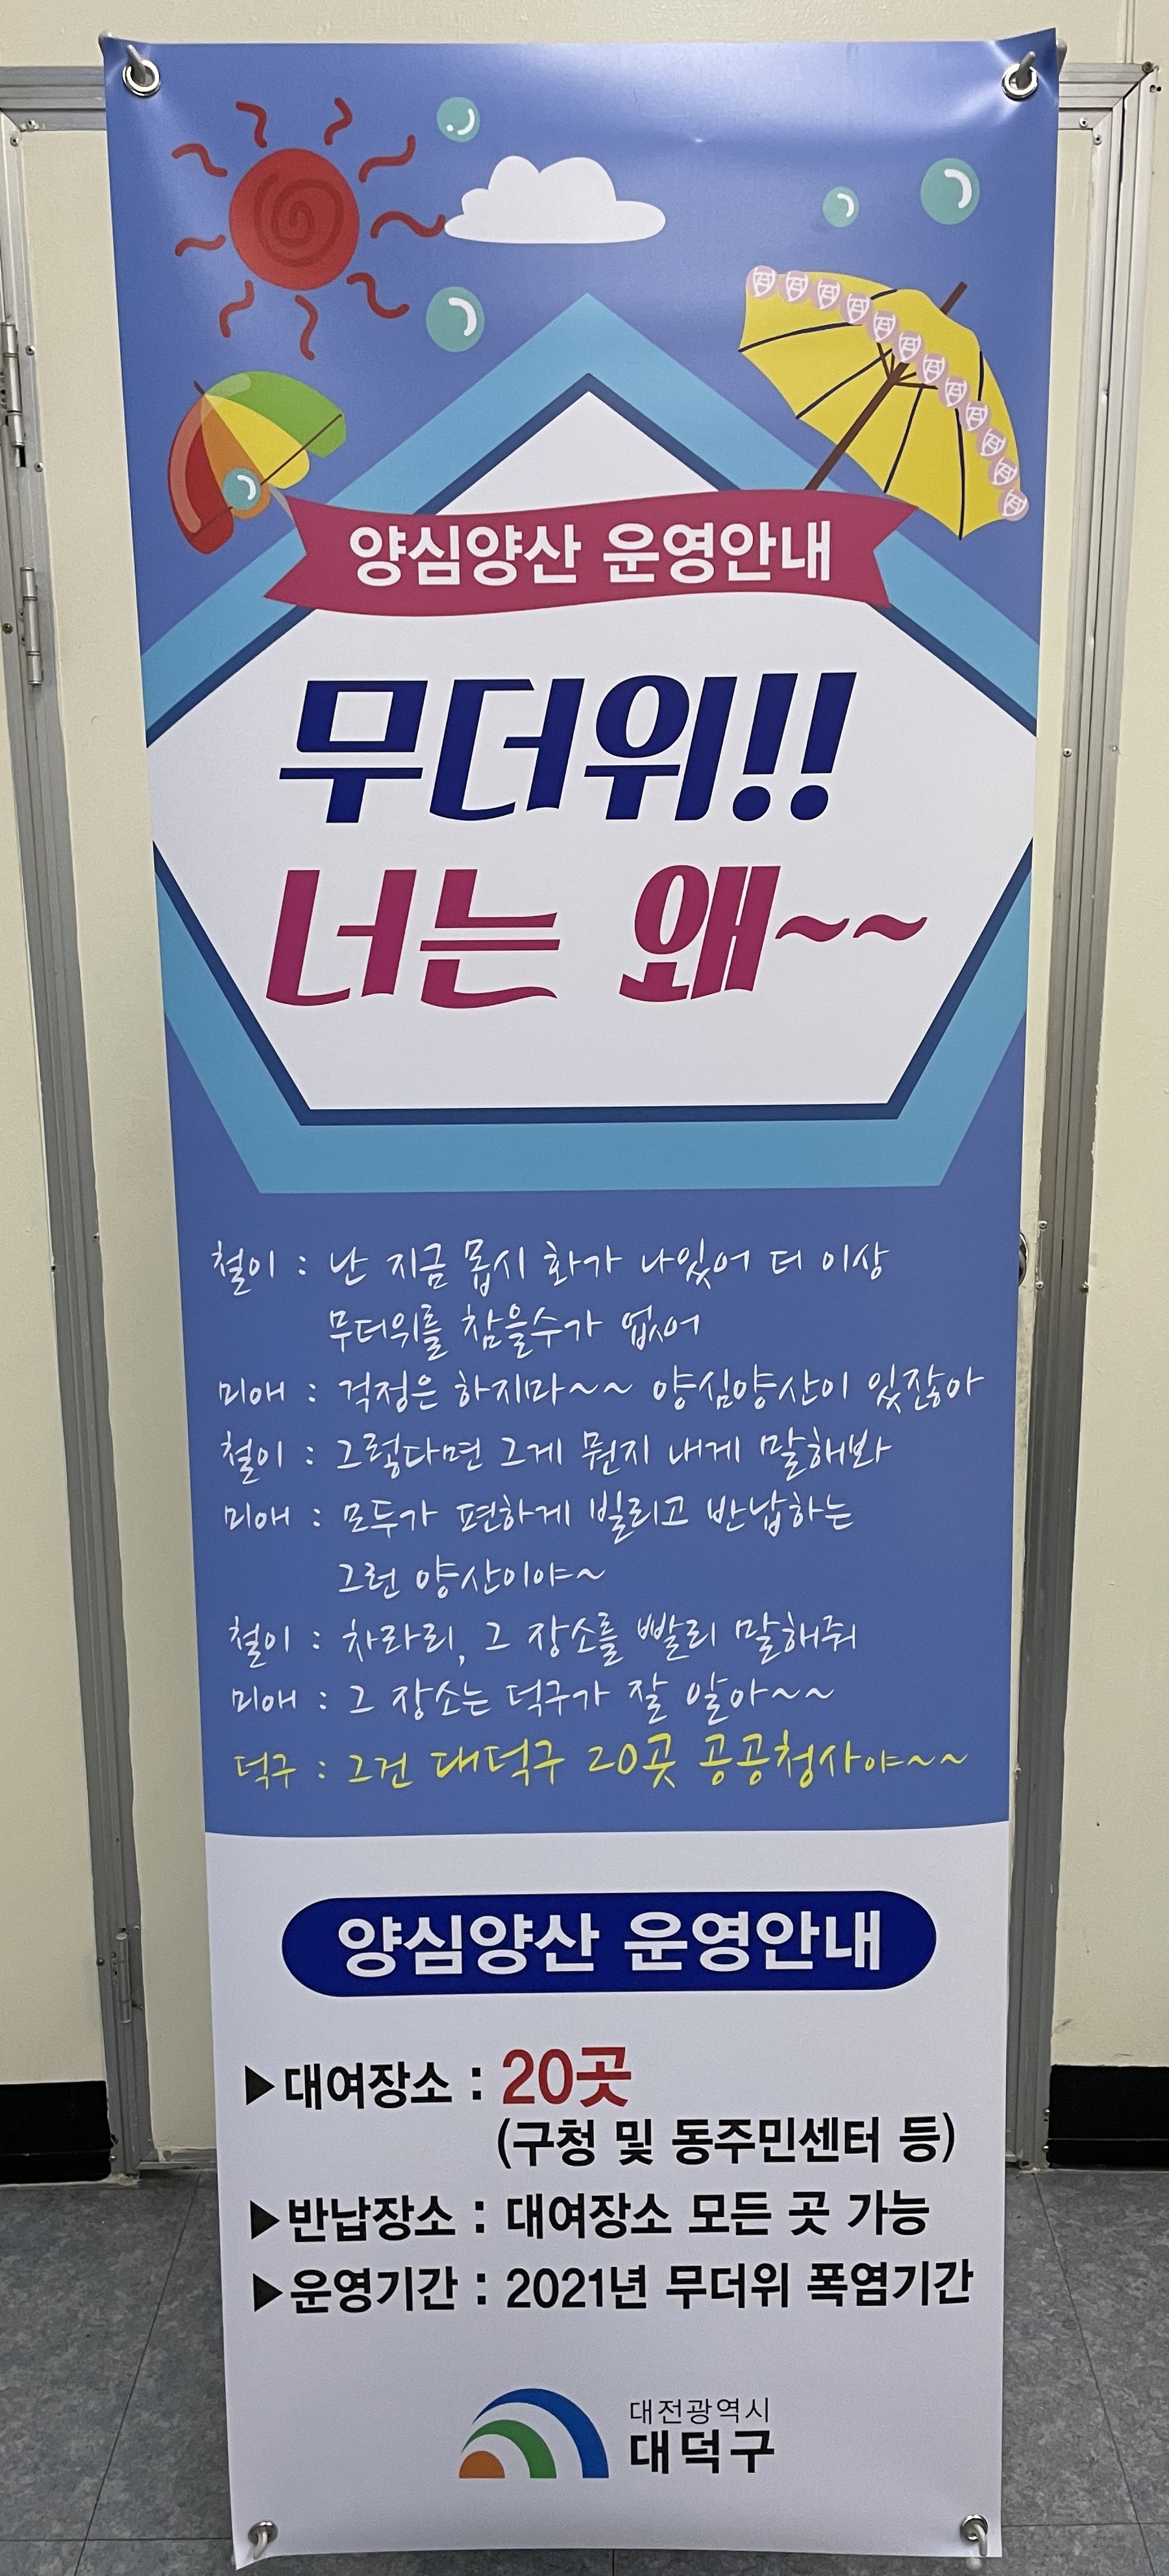 양심양산 운영안내
무더위!!
너는 왜~~
철이 : 난 지금 몹시 화가 나있어 더 이상
무더위를 참을수가 없어
미애 : 걱정은 하지마~~ 양심양산이 있잖아
철이 : 그렇다면 그게 뭔지 내게 말해봐
미애 : 모두가 편하게 빌리고 반납하는
그런 양산이야~
철이 : 차라리, 그 장소를 빨리 말해줘
미애 : 그 장소는 덕구가 잘 알아~~
덕구 : 그건 대덕구 20곳 공공청사야~~
양심양산 운영안내
▶대여장소 : 20곳
(구청 및 동주민센터 등)
▶반납장소 : 대여장소 모든 곳 가능
▶운영기간 : 2021년 무더위 폭염기간
대전광역시
대덕구